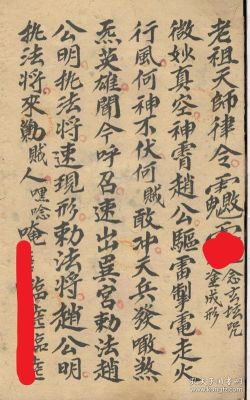 老祖天師律令
念玄坛咒
塗成形
微妙真空神霄趙公驅雷掣電走火
行風何神不伏何賊敢冲天兵發噉煞
炁英雄聞今呼召速出巽宮勅法趙
公明挑法將速現形勅法將趙公明
挑法將來賊人嘿唸唵